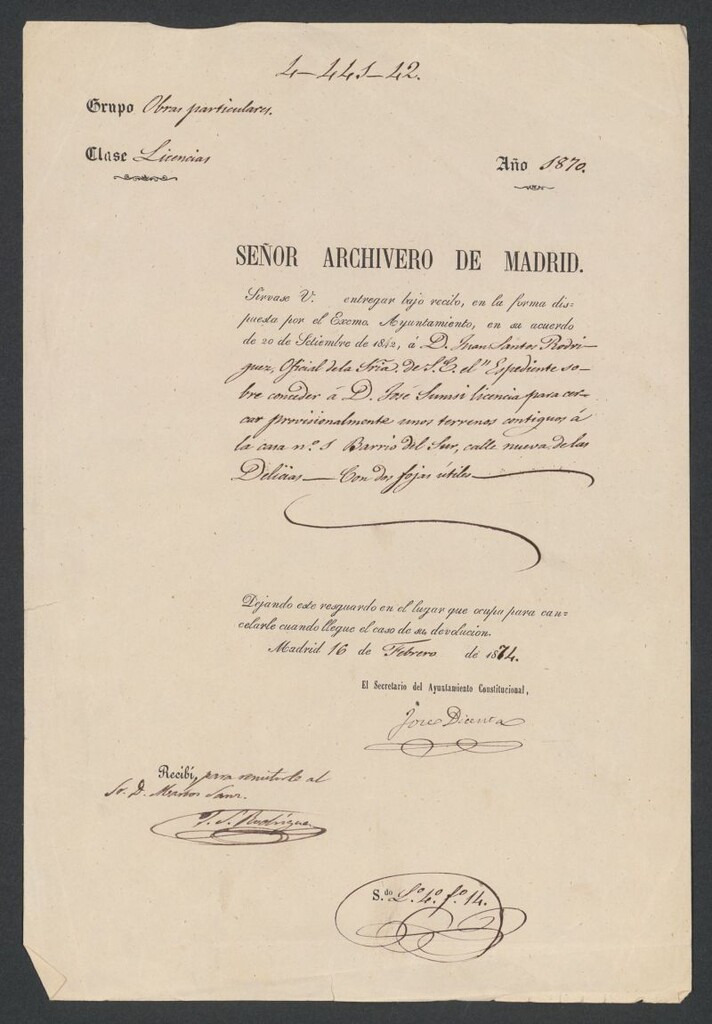 4-441-42.
Grupo Obras particulares.
Clase Licencias
Año 1870.
SEÑOR ARCHIVERO DE MADRID.
Sírvase V. entregar bajo recibo, en la forma dis-
puesta por el Excmo. Ayuntamiento, en su acuerdo
de 20 de Setiembre de 1842, á D. Juan Santos Rodri-
guez, Oficial de la Sría. de S.E. el Espediente so-
bre conceder á D. José Sumsi licencia para cer-
car provisionalmente unos terrenos contiguos á
la casa nº. 1 Barrio del Sur, calle nueva de las
Delicias — Con dos fojas útiles —
Dejando este resguardo en el lugar que ocupa para can-
celarle cuando llegue el caso de su devolucion.
Madrid 16 de Febrero de 1874.
El Secretario del Ayuntamiento Constitucional,
José Dicenta
Recibí, para remitirle al
Sr. D. Marcos Sanz.
J. S. Rodríguez
S.do L.º 4.º f.º 14.